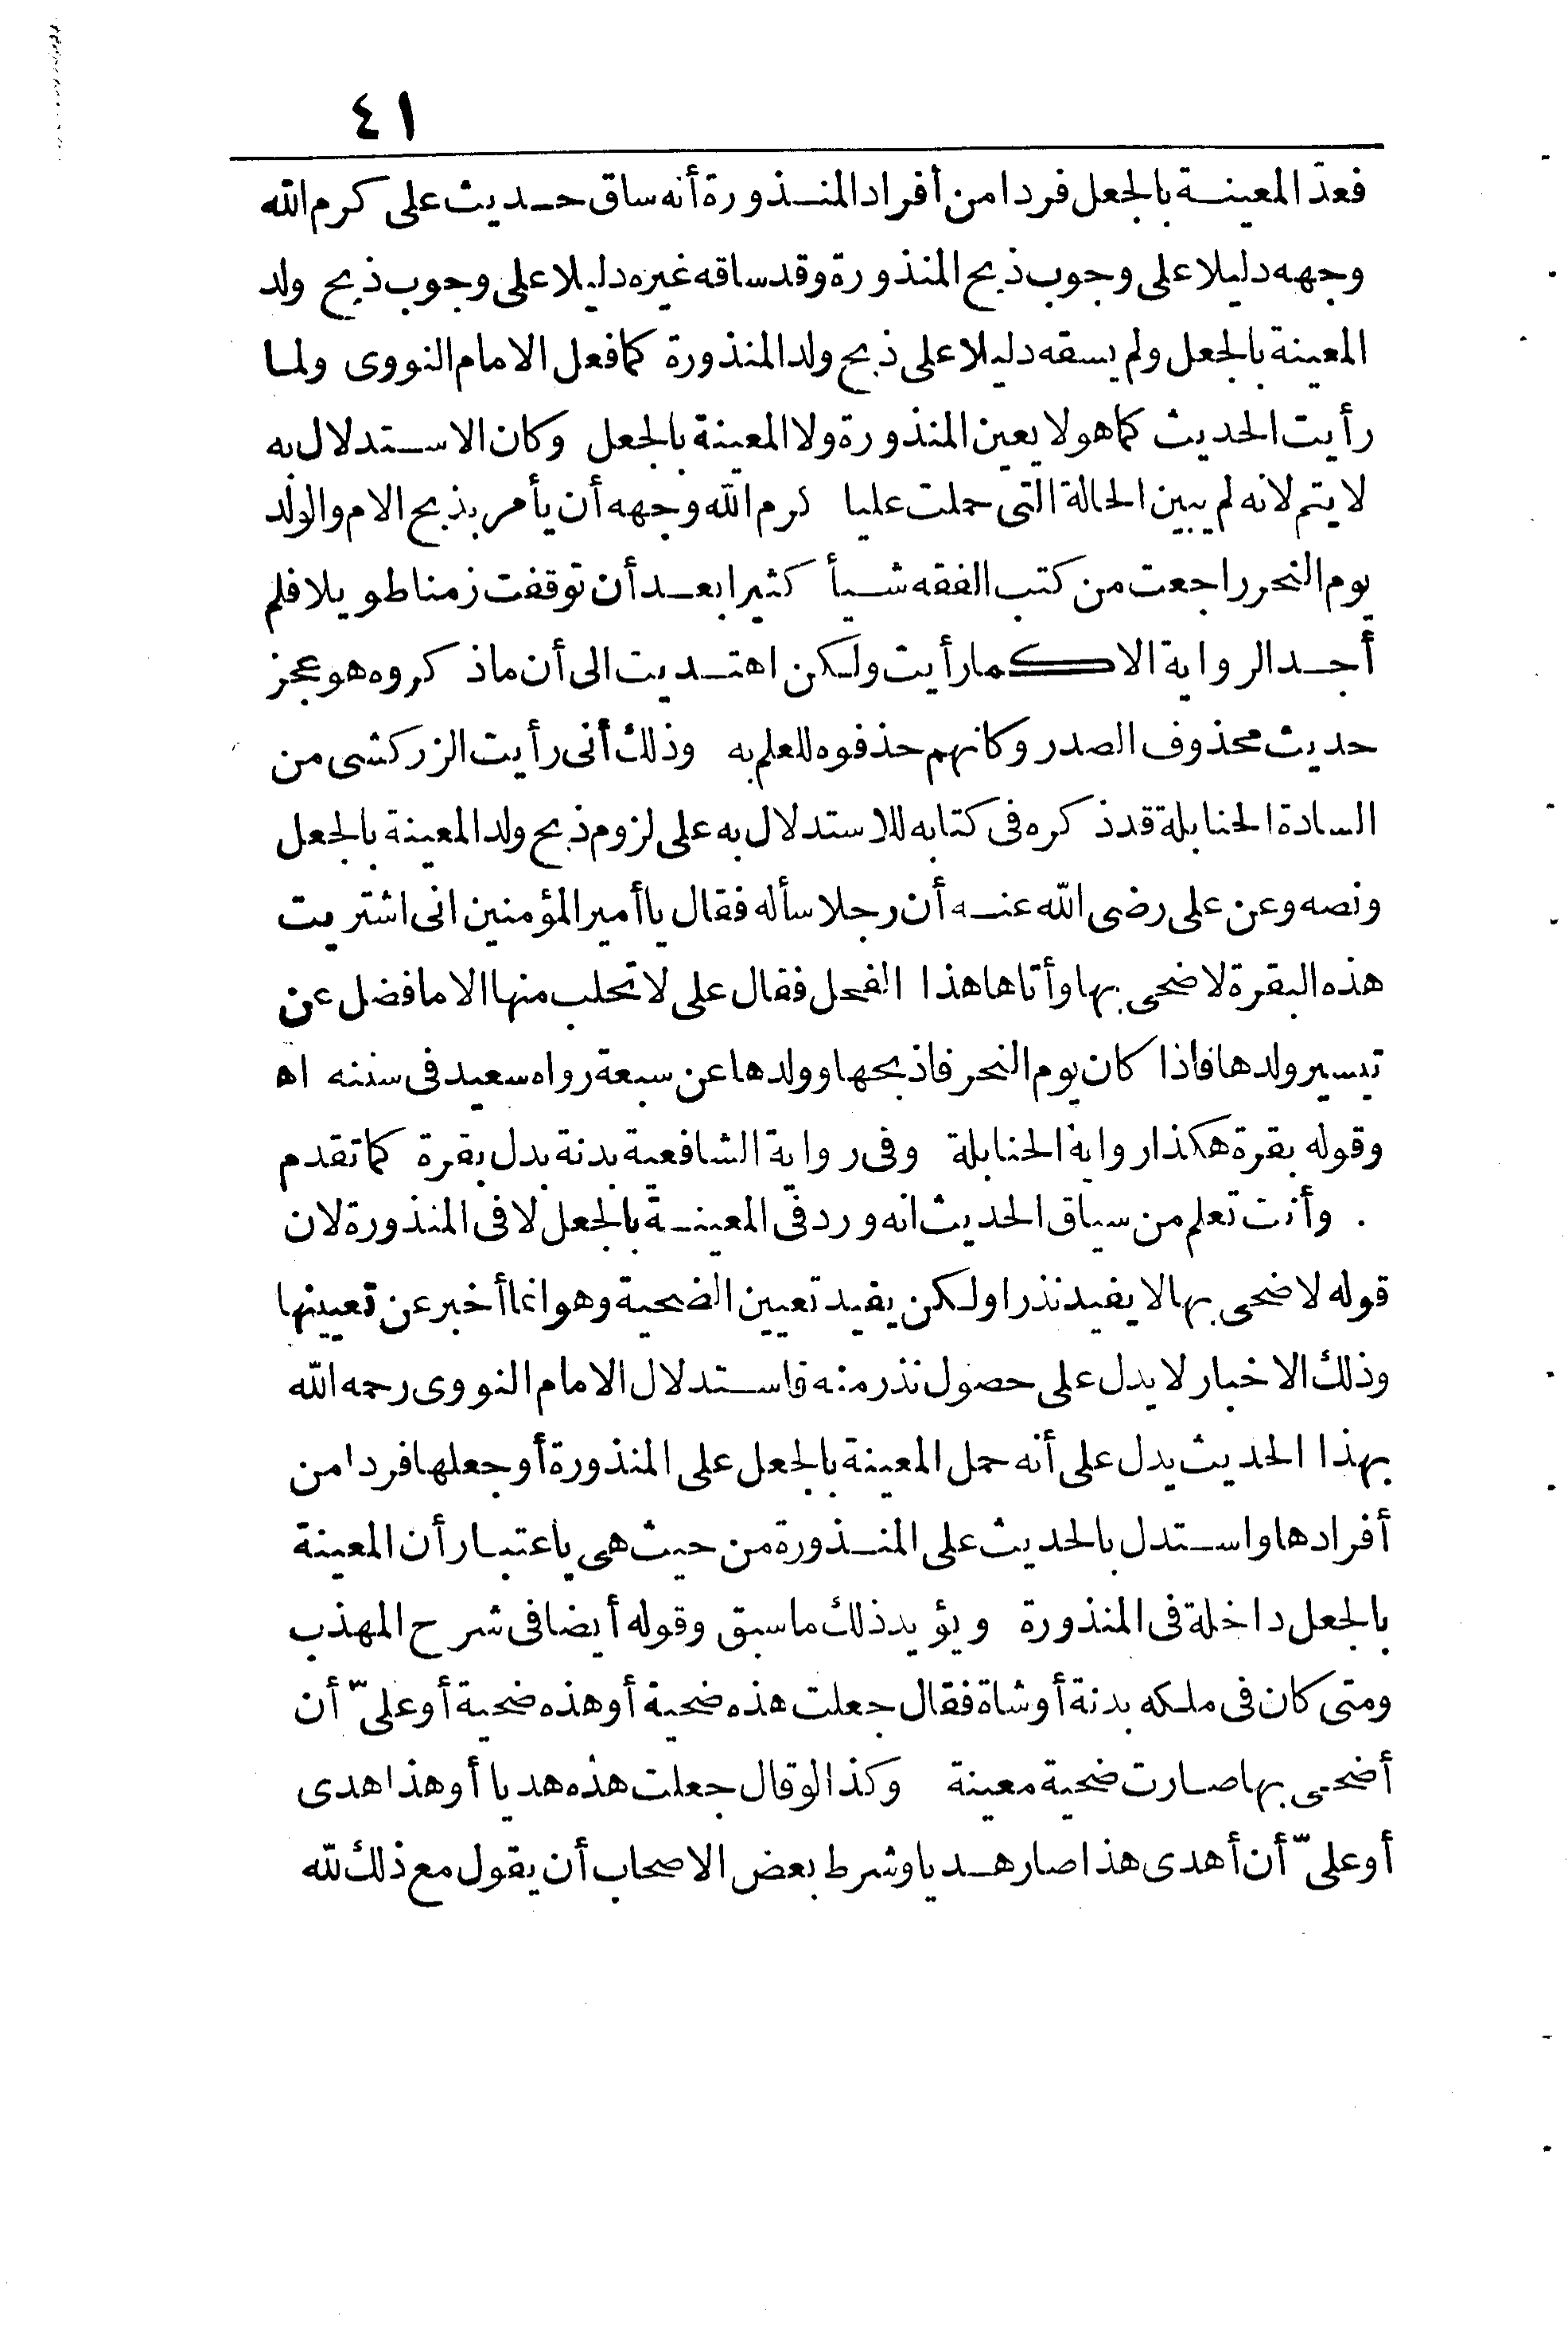 ٤١
فعدّ المعينة بالجعل فردا من أفراد المنذورة أنه ساق حديث على كرم الله
وجهه دليلا على وجوب ذبح المنذورة وقد ساقه غيره دليلا على وجوب ذبح ولد
المعينة بالجعل ولم يسقه دليلا على ذبح ولد المنذورة كما فعل الامام النووى ولما
رأيت الحديث كما هو لا يعين المنذورة ولا المعينة بالجعل وكان الاستدلال به
لا يتم لانه لم يبين الحالة التى حملت عليا كرم الله وجهه أن يأمر بذبح الام والولد
يوم النحر راجعت من كتب الفقه شيأ كثيرا بعد أن توقفت زمنا طويلا فلم
أجد الرواية الا كما رأيت ولكن اهتديت الى أن ماذكروه هو عجز
حديث محذوف الصدر وكانهم حذفوه للعلم به وذلك أنى رأيت الزركشى من
السادة الحنابلة قد ذكره فى كتابه للاستدلال به على لزوم ذبح ولد المعينة بالجعل
ونصه وعن على رضى الله عنه أن رجلا سأله فقال يا أمير المؤمنين انى اشتريت
هذه البقرة لاضحى بها وأتاها هذا الفحل فقال على لا تحلب منها الا ما فضل عن
تيسير ولدها فاذا كان يوم النحر فاذبحها وولدها عن سبعة رواه سعيد فى سننه اه
وقوله بقرة هكذا رواية الحنابلة وفى رواية الشافعية بدنة بدل بقرة كما تقدم
. وأنت تعلم من سياق الحديث انه ورد فى المعينة بالجعل لا فى المنذورة لان
قوله لاضحى بها لا يفيد نذرا ولكن يفيد تعيين الضحية وهو انما أخبر عن تعيينها
وذلك الاخبار لا يدل على حصول نذر منه فاستدلال الامام النووى رحمه الله
بهذا الحديث يدل على أنه حمل المعينة بالجعل على المنذورة أو جعلها فردا من
أفرادها واستدل بالحديث على المنذورة من حيث هى باعتبار أن المعينة
بالجعل داخلة فى المنذورة ويؤيد ذلك ما سبق وقوله أيضا فى شرح المهذب
ومتى كان فى ملكه بدنة أو شاة فقال جعلت هذه ضحية أو هذه ضحية أو علىّ أن
أضحى بها صارت ضحية معينة وكذا لو قال جعلت هذه هديا أو هذا هدى
أو علىّ أن أهدى هذا صار هديا وشرط بعض الاصحاب أن يقول مع ذلك لله